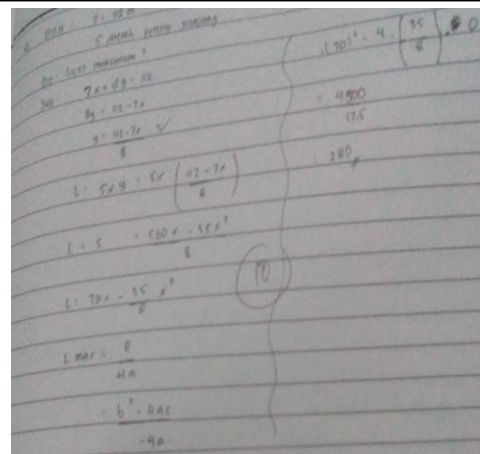 Dik P = 112 m
5 petak
Dit: Luas maksimum?
Jwb
7x + 8y = 112
8y = 112 - 7x
y = 112 - 7x / 8 ✓
L = 5xy = 5x (112 - 7x / 8)
L = 5 = 560x - 35x² / 8
L = 70x - 35/8 x²
L max = D / 4a
= b² - 4ac / -4a
(70)² - 4 . (35/8) . 0
= 4900 / 17.5
= 280
10